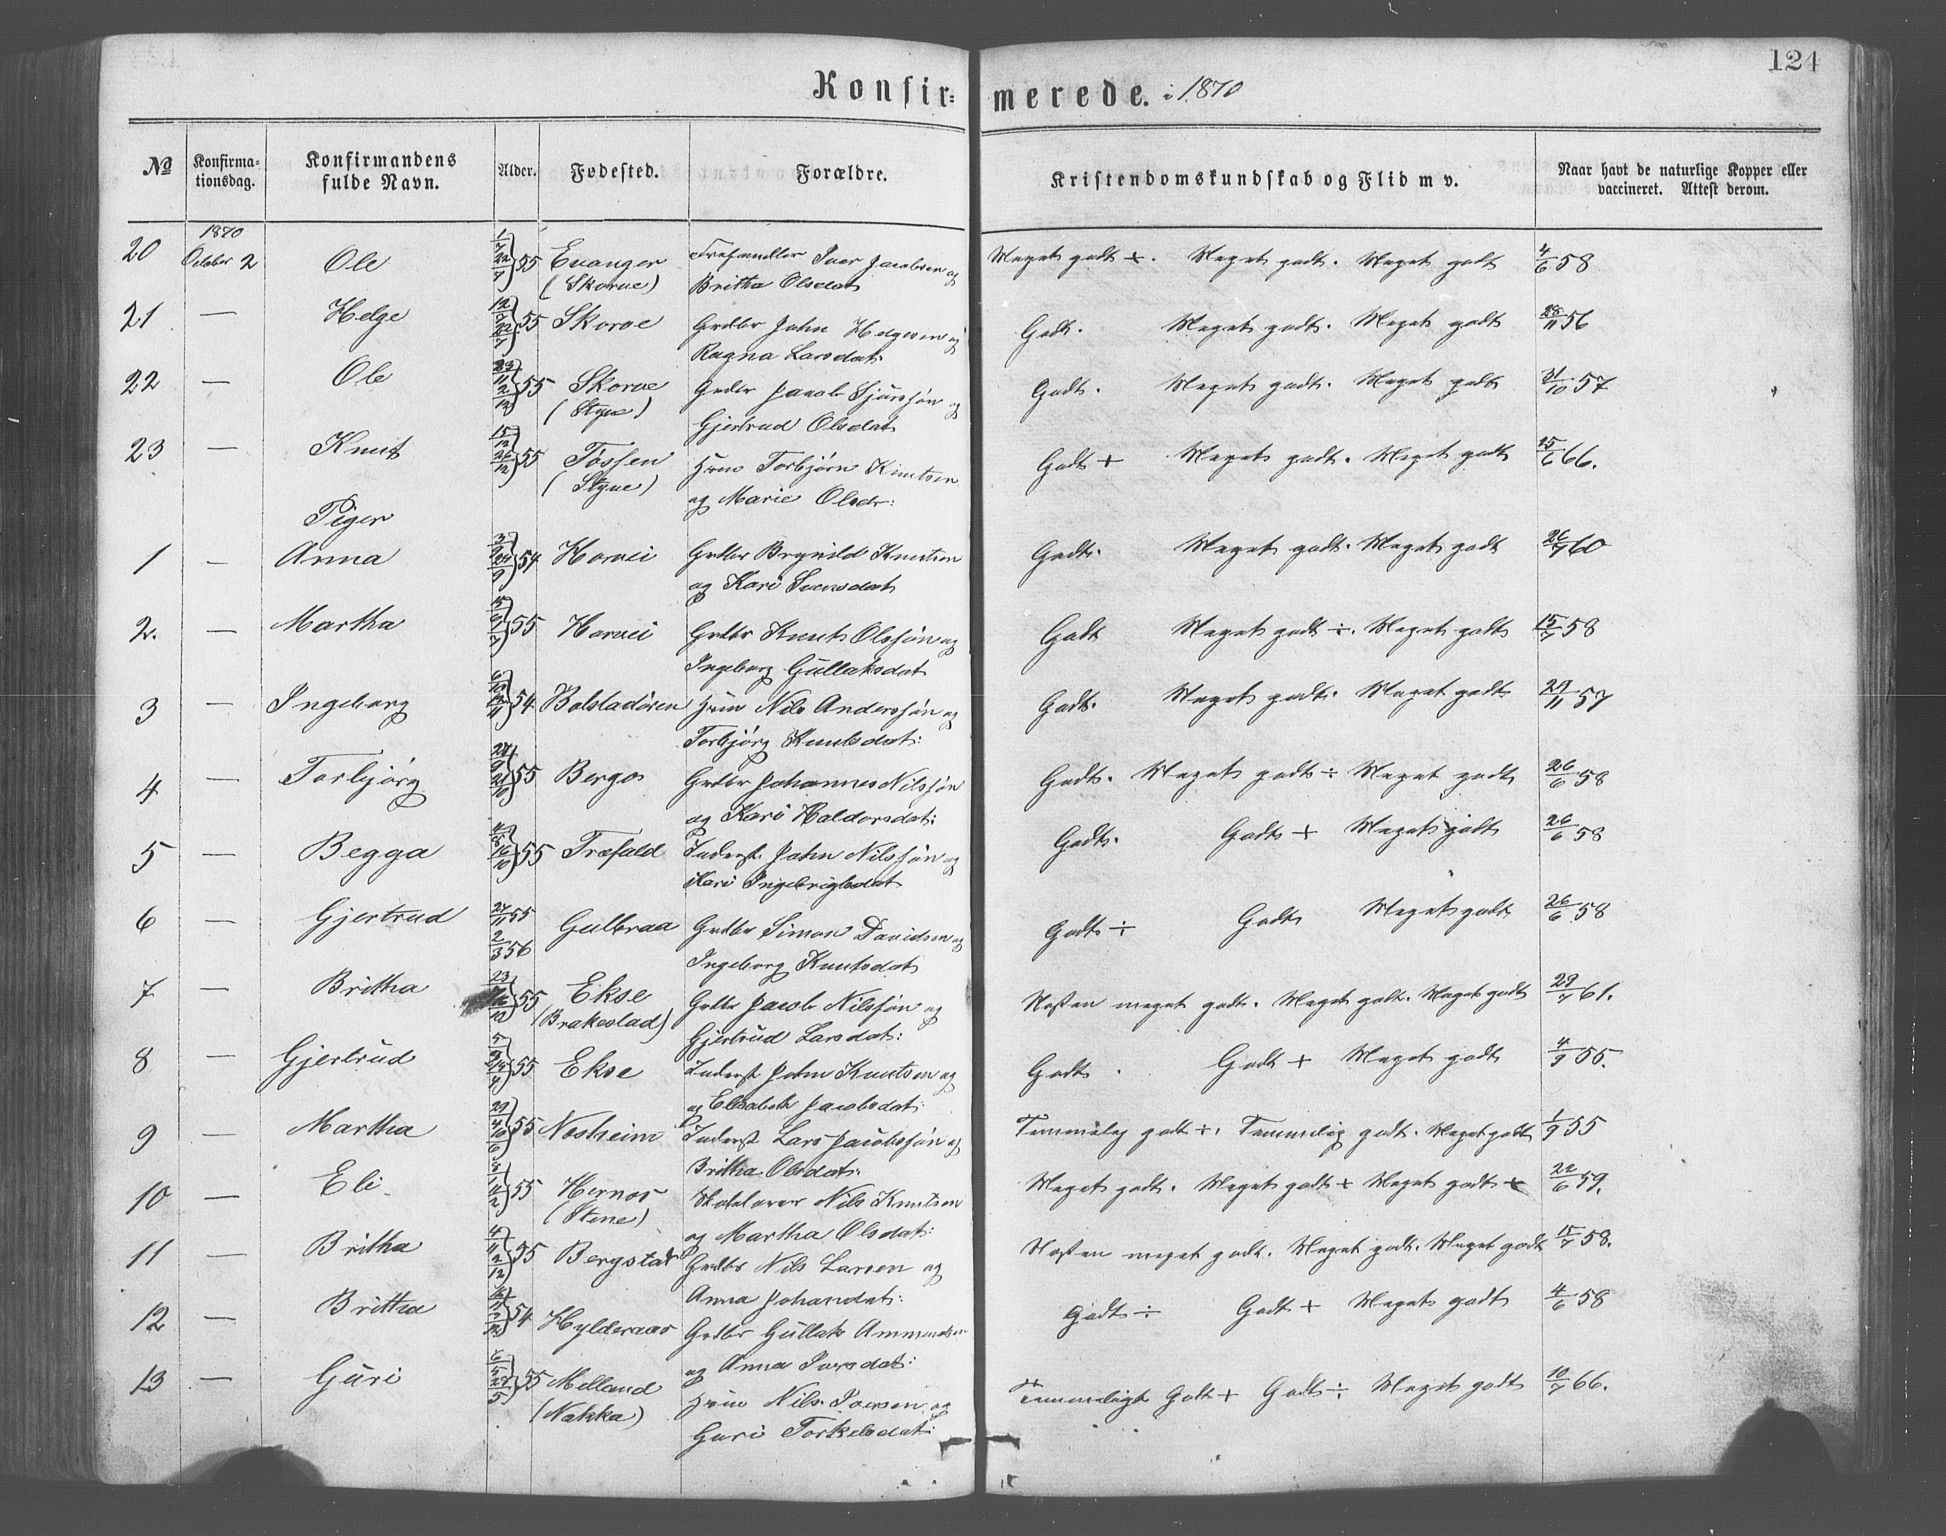 124
Konfir=
merede. i 1870
No
Konfirma-
tionsdag.
Konfirmandens
fulde Navn.
Alder.
Fødested.
Forældre.
Kristendomskundskab og Flid m v.
Naar havt de naturlige Kopper eller
vaccineret. Attest derom.
1870
20 October 2 Ole 55 Evanger Iver Jacobsen og Meget godt +. Meget godt. Meget godt 4/6 58
(Skorve) Britha Olsdat
21 — Helge 55 Skorve Grdbr John Helgesen og Godt. Meget godt. Meget godt 28/11 56
Ragna Larsdat:
22 — Ole 55 Skorve Grdbr Jacob Sjursøn og Godt. Meget godt. Meget godt 31/10 57
(Styve) Gjertrud Olsdat
23 — Knut 55 Tøssen Hrm Torbjørn Knutsen Godt + Meget godt. Meget godt 25/6 66.
(Styve) og Marie Olsdr:
Piger
1 — Anna 54 Horvei Grdbr Brynild Knutsen Godt. Meget godt. Meget godt 26/7 60
og Kari Svensdat
2. — Martha 55 Horvei Grdbr Knut Olssøn og Godt Meget godt ÷. Meget godt 15/7 58
Ingeborg Gullaksdat
3 — Ingeborg 54 Bolstadøren Hrm Nils Anderssøn og Godt. Meget godt. Meget godt 29/11 57
Torbjørg Knutsdat:
4 — Torbjørg 55 Bergo Grdbr Johannes Nilssøn Godt. Meget godt ÷ Meget godt 26/6 58
og Kari Haldorsdat:
5 — Begga 55 Træfald Inderst John Nilssøn og Godt. Godt + Meget godt 26/6 58
Kari Ingebrigtsdat
6 — Gjertrud 27/11 55 Gulbraa Grdbr Simon Davidsen og Godt ÷ Godt Meget godt 26/6 58
2/3 56 Ingeborg Knutsdat
7 — Britha 55 Ekse Grdbr Jacob Nilssøn og Næsten meget godt. Meget godt. Meget godt 29/7 61.
(Brakestad) Gjertrud Larsdat:
8 — Gjertrud 55 Ekse Inderst John Knutsen og Godt. Godt + Meget godt 4/9 55.
og Elisabeth Jacobsdat:
9 — Martha 55 Nosheim Inderst Lars Jacobssøn og Temmelig godt ÷. Temmelig godt. Meget godt 1/9 55
Britha Olsdat:
10 — Eli 55 Hernos Skolelærer Nils Knutsen Meget godt. Meget godt + Meget godt + 22/6 59.
(Stene) og Martha Olsdat:
11 — Britha 55 Bergstad Grdbr Nils Larsen og Næsten meget godt. Meget godt. Meget godt 15/7 58.
Anna Johandat:
12 — Brittha 54 Hylderaas Grdbr Gullak Ammundsen Godt ÷ Godt + Meget godt 4/6 58
og Anna Iversdat:
13 — Guri 55 Melland Hrm Nils Iversen og Temmeligt Godt + Godt ÷ Meget godt 10/7 66.
(Nakka) Guri Torkelsdat: